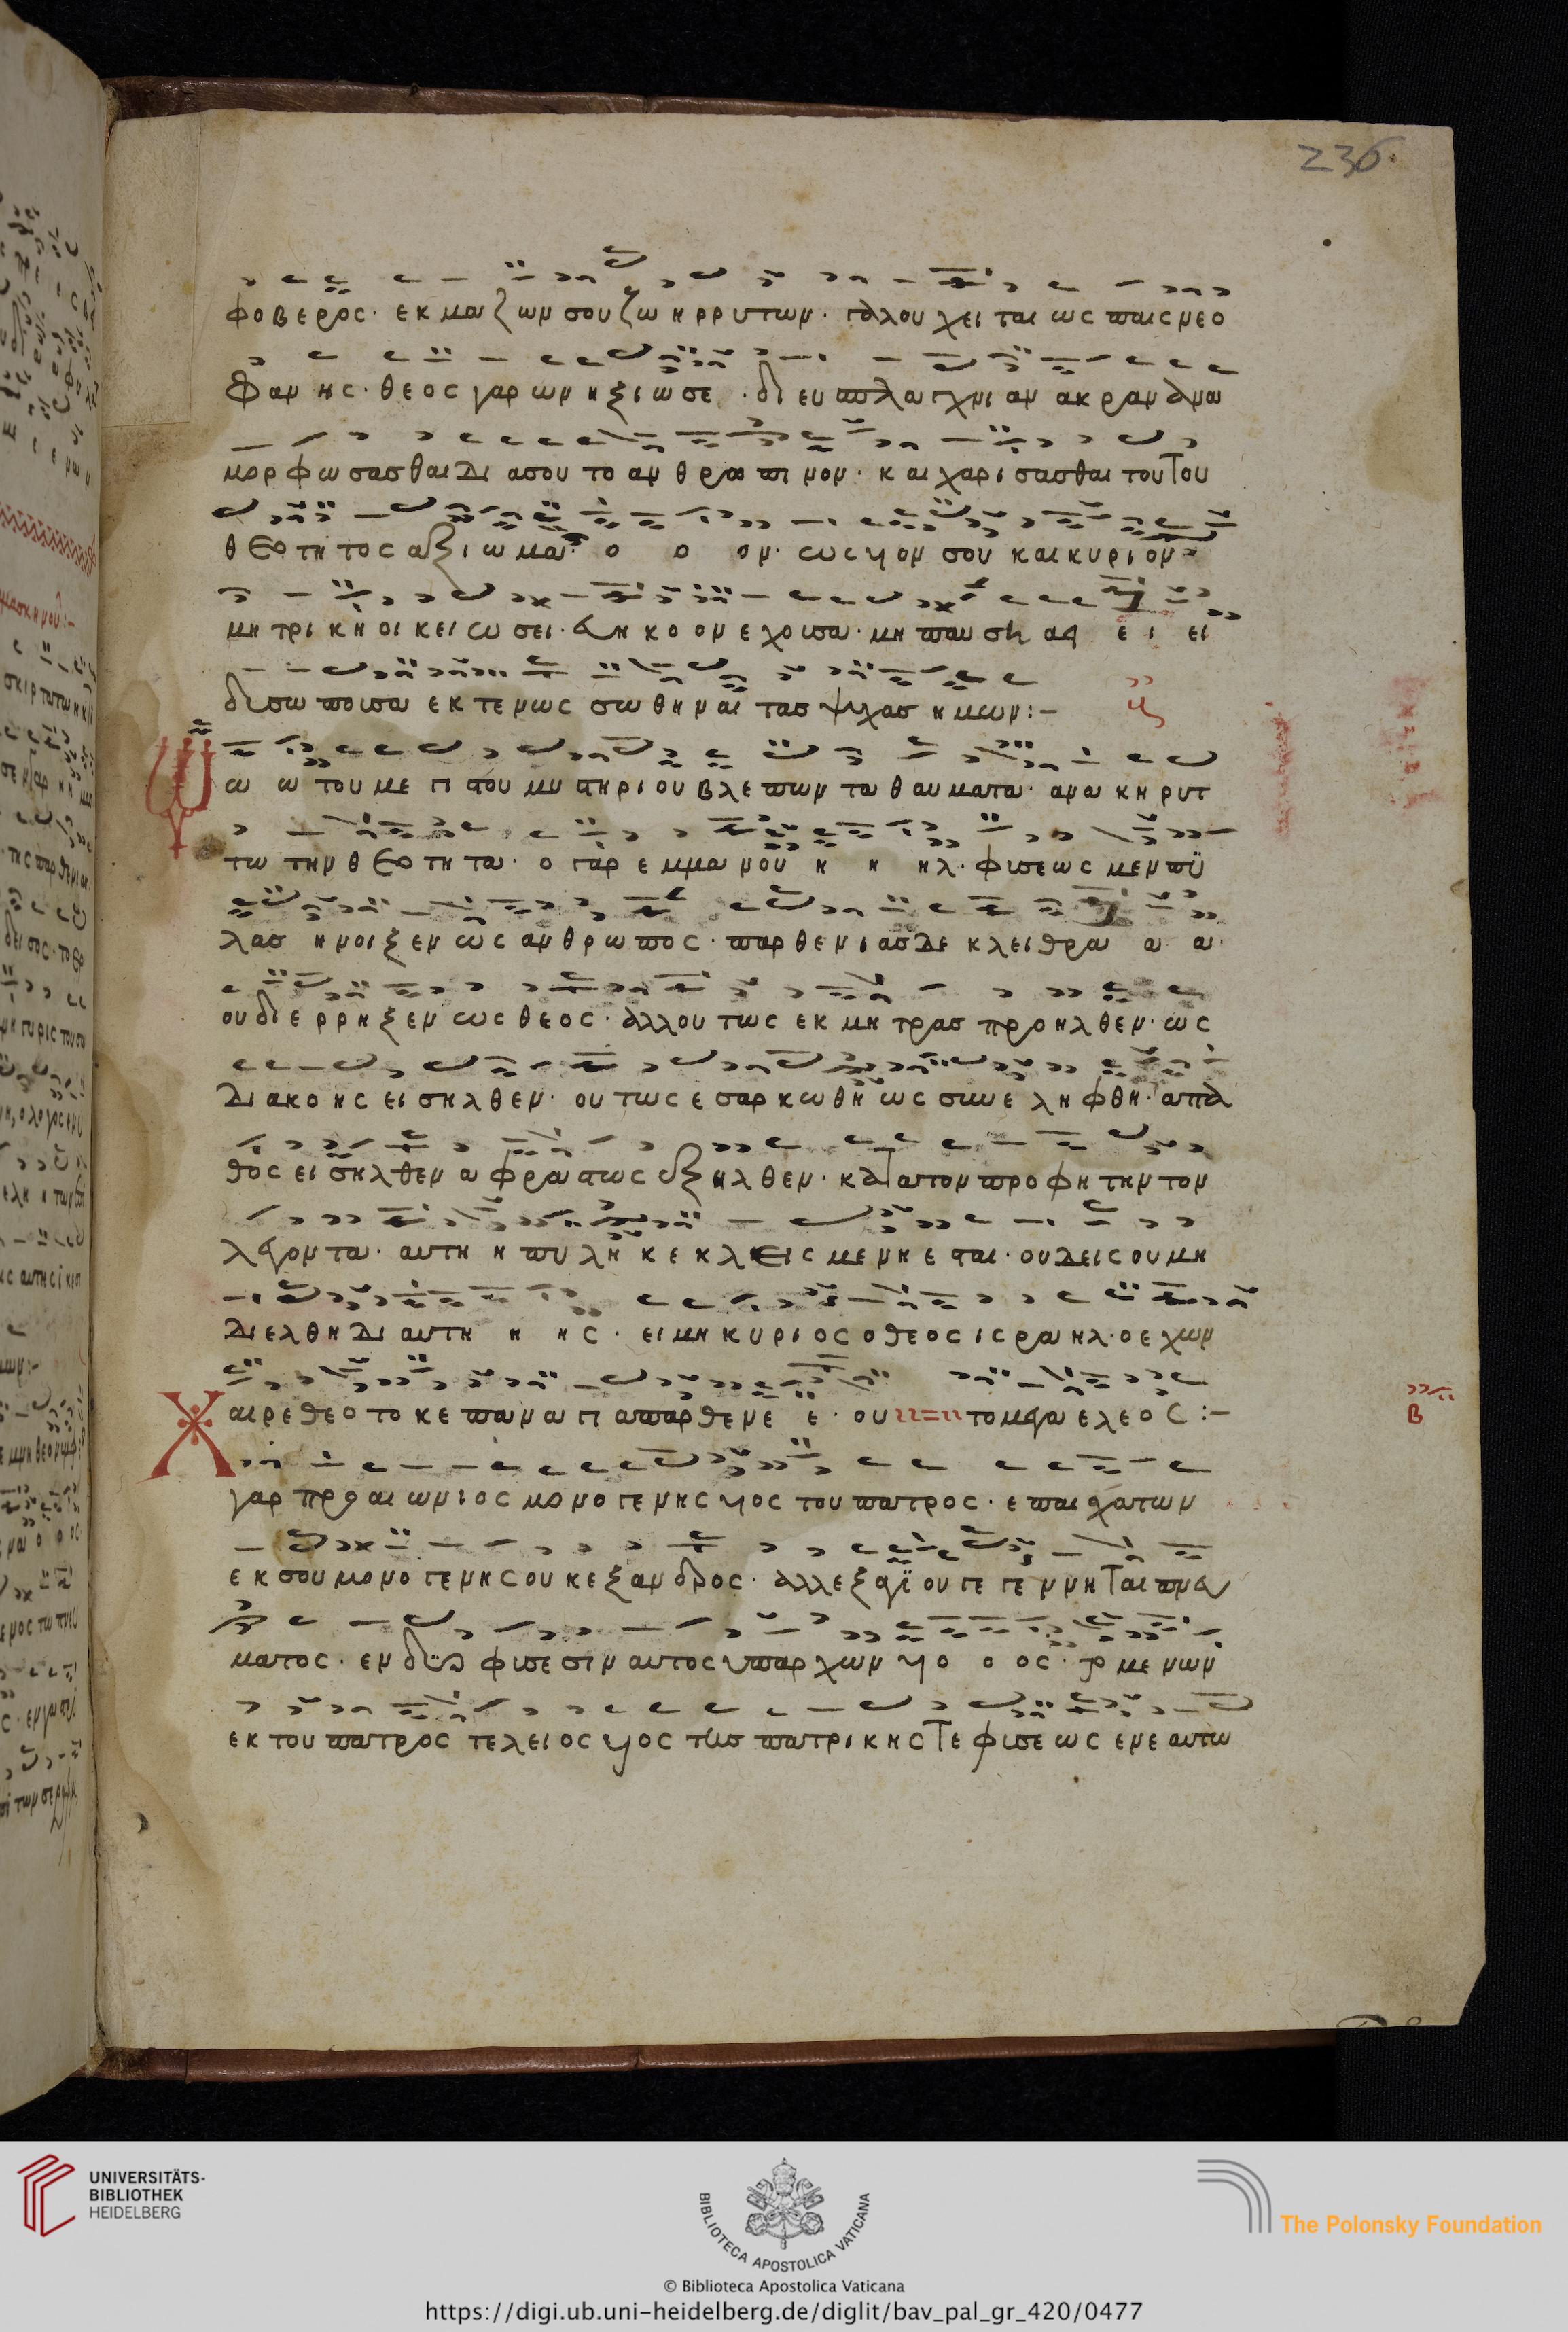 236
φοβερος· εκ μαζων σου ζωηρρυτων· γαλουχειται ως παις νεο
φανης· θεος γαρ ων ηξιωσε· δι ευσπλαγχνιαν ακραν ανα
μορφωσασθαι δια σου το ανθρωπινον· και χαρισασθαι τουτου
θεοτητος αξιωμα· ο ο ον· ως υιον σου και κυριον
μητρικη οικειωσει· εχουσα· μη παυση ας ει ι ει
δυσωπουσα εκτενως σωθηναι τας ψυχας ημων:–
Ω ω του μεγιστου μυστηριου βλεπων τα θαυματα· ανακηρυτ
τω την θεοτητα· ο γαρ εμμανου η η ηλ· φυσεως μεν πυ
λας ηνοιξεν ως ανθρωπος· παρθενιας δε κλειθρα α α·
ου διερρηξεν ως θεος· αλλ ουτως εκ μητρας προηλθεν· ως
δι ακοης εισηλθεν· ουτως εσαρκωθη ως συνεληφθη· απα
θως εισηλθεν αφραστως εξηλθεν· κατα τον προφητην τον
λεγοντα· αυτη η πυλη κεκλεισμενη εσται· ουδεις ου μη
διελθη δι αυτη η ης· ει μη κυριος ο θεος ισραηλ· ο εχων
το μεγα ελεος:–
Χαιρε θεοτοκε παναγια παρθενε ε· ου
β
γαρ προαιωνιος μονογενης υιος του πατρος· επ εσχατων
εκ σου μονογενης ουκ εξ ανδρος· αλλ εξ αγιου γεγεννηται πνευ
ματος· εν δυο φυσεσιν αυτος υπαρχων υιο ο ος· ο μεν ων
εκ του πατρος τελειος υιος της πατρικης τε φυσεως εν εαυτω
UNIVERSITÄTS-
BIBLIOTHEK
HEIDELBERG
BIBLIOTECA APOSTOLICA VATICANA
The Polonsky Foundation
© Biblioteca Apostolica Vaticana
https://digi.ub.uni-heidelberg.de/diglit/bav_pal_gr_420/0477